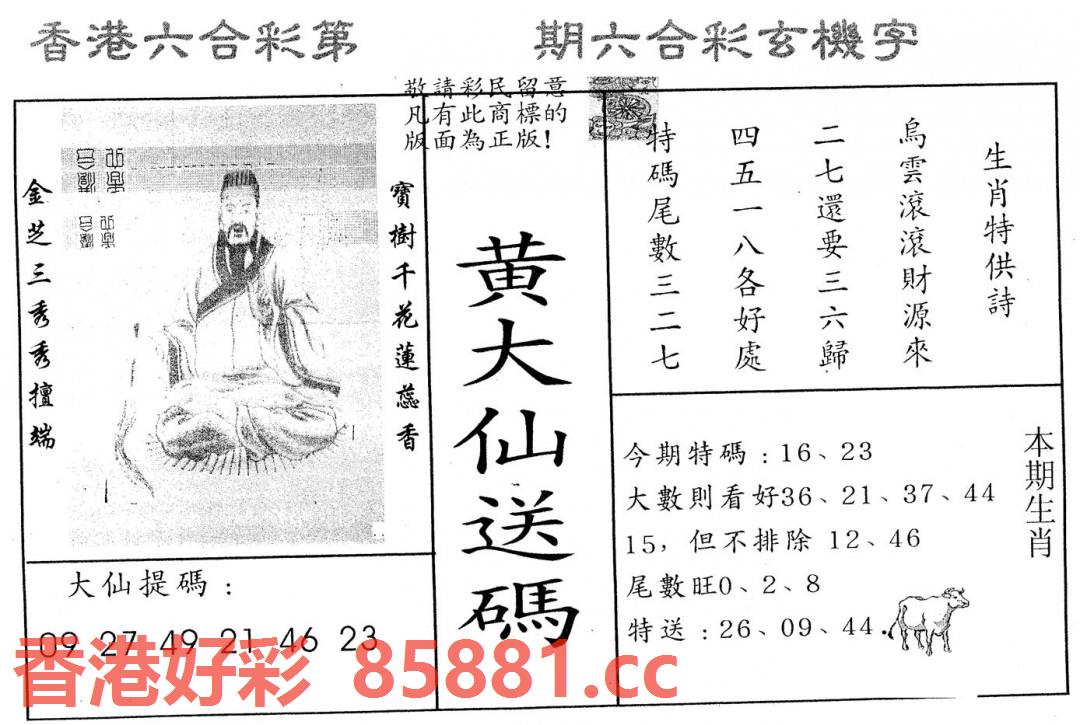 香港六合彩第 期六合彩玄機字
敬請彩民留意
凡有此商標的
版面為正版!
金芝三秀秀擅端
寶樹千花蓮蕊香
黃大仙送碼
生肖特供詩
烏雲滾滾財源來
二七還要三六歸
四五一八各好處
特碼尾數三二七
大仙提碼:
09 27 49 21 46 23
今期特碼:16、23
大數則看好36、21、37、44
15,但不排除 12、46
尾數旺0、2、8
特送:26、09、44.
本期生肖
香港好彩 85881.cc